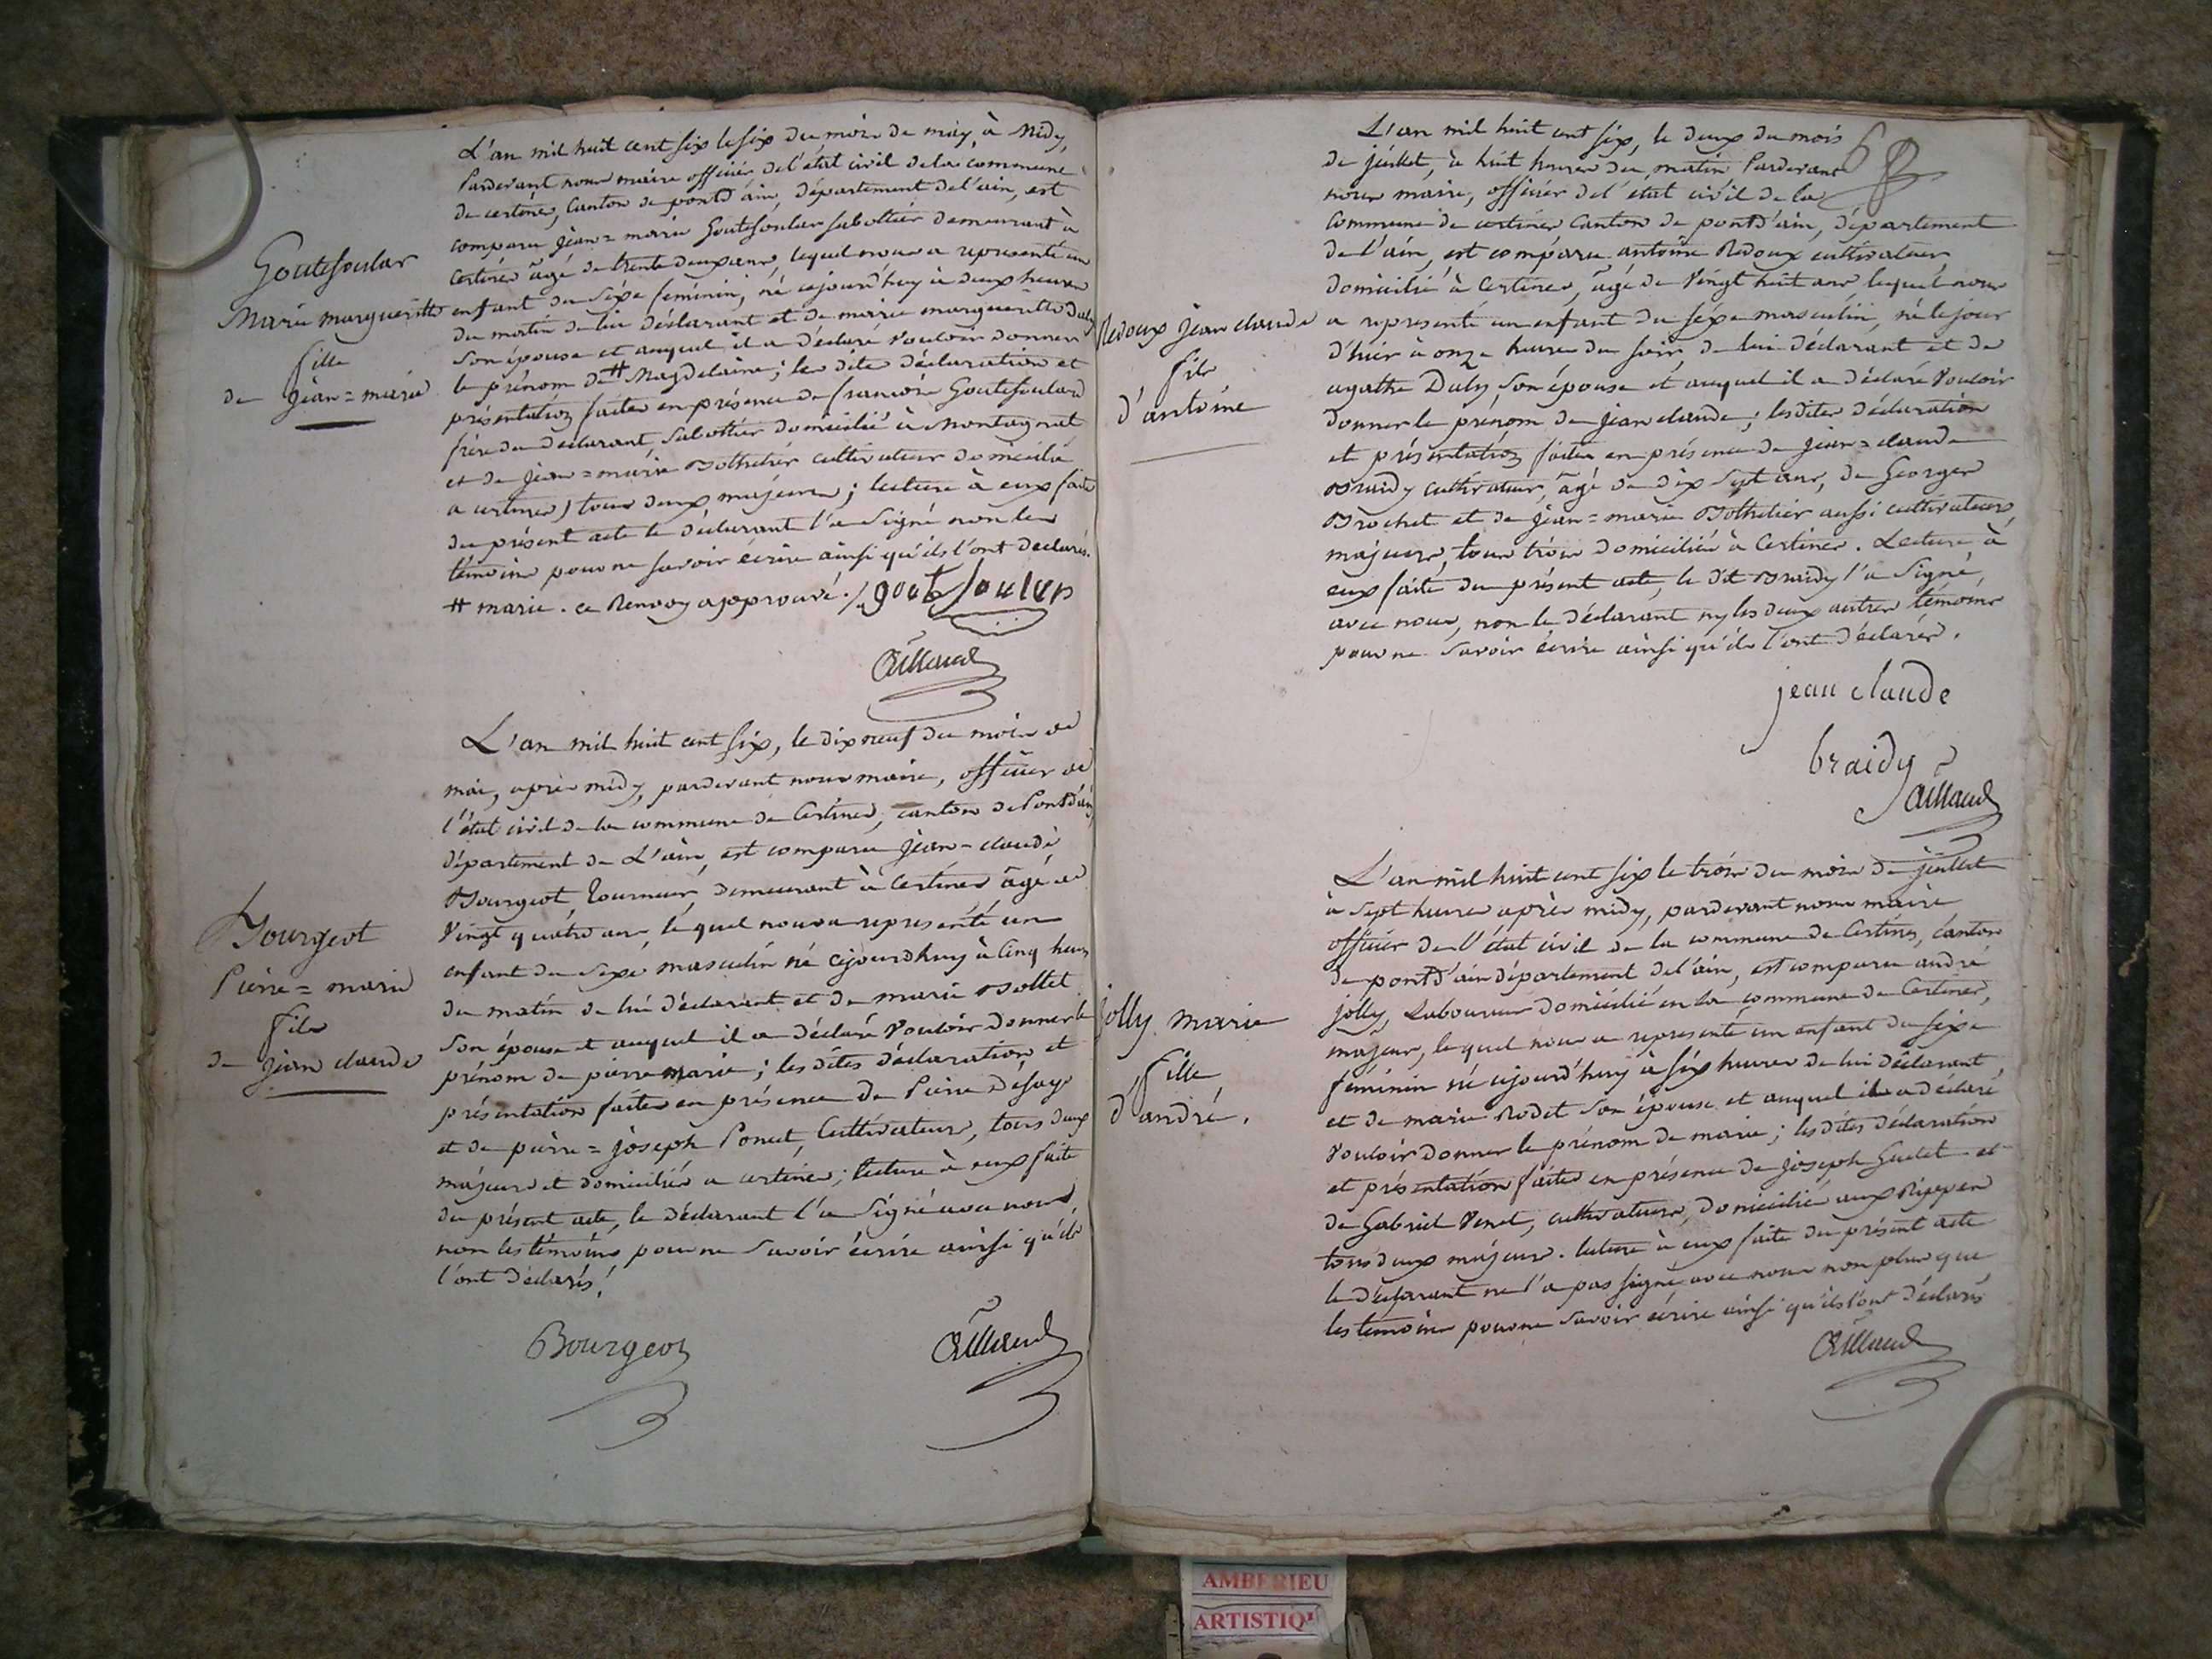 Goutesoular
Marie marguerite
fille
de jean=marie
L'an mil huit cent six le six du mois de may, à midy,
Pardevant nous maire officier de l'état civil de la commune
de certines, Canton de pont d'ain, département de l'ain, est
comparu jean=marie Goutesoular sabottier demeurant à
Certines âgé de trente deux ans, lequel nous a représenté un
enfant du sexe feminin, né cejourd'huy à deux heures
du matin de lui déclarant et de marie marguerite Duby
son épouse et auquel il a déclaré vouloir donner
le prénom de # Magdelaine; les dites déclaration et
présentation faites en présence de françois Goutesoulard
frère du déclarant, sabottier domicilié à Montagnat
et de jean=marie Bothelier cultivateur domicilié
a certines) tous deux majeurs; lecture à eux faite
du présent acte le déclarant l'a signé non les
témoins pour ne savoir écrire ainsi qu'ils l'ont declarés.
# marie. ce Renvoy approuvé./. goutesoular
Bourgeot
Pierre=marie
fils
de jean claude
L'an mil huit cent six, le dix neuf du mois de
mai, après midy, pardevant nous maire, officier de
l'état civil de la commune de Certines, canton de Pontd'ain,
département de L'ain, est comparu jean=claude
Bourgeot, tourneur, demeurant à Certines âgé de
vingt quatre ans, lequel nous a représenté un
enfant du sexe masculin né cejourdhuy à Cinq heures
du matin de lui déclarant et de marie Bollet
son épouse et auquel il a déclaré vouloir donner le
prénom de pierre marie; les dites déclaration et
présentation faites en présence de Pierre Désaye
et de pierre=joseph Poncet, Cultivateurs, tous deux
majeurs et domiciliés a certines; lecture à eux faite
du présent acte, le déclarant l'a signé avec nous,
non les témoins pour ne savoir écrire ainsi qu'ils
l'ont déclarés.
Bourgeot
Redoux jean claude
fils
d'antoine
6
L'an mil huit cent six, le deux du mois
de juillet, à huit heures du matin Pardevant
nous maire, officier de l'etat civil de la
Commune de certines Canton de pontd'ain, département
de l'ain, est comparu antoine Redoux cultivateur
domicilié à Certines, âgé de vingt huit ans, lequel nous
a représenté un enfant du sexe masculin, né le jour
d'hier à onze heures du soir, de lui déclarant et de
agathe Duby, son épouse et auquel il a déclaré vouloir
donner le prénom de jean claude; lesdites déclaration
et présentation faites en présence de jean=claude
Braidy cultivateur, âgé de dix sept ans, de Georges
Brochet et de jean=marie Bothelier aussi cultivateurs
majeurs, tous trois domiciliés à Certines. Lecture à
eux faite du présent acte, le dit Braidy l'a signé,
avec nous, non le déclarant ny les deux autres témoins
pour ne savoir écrire ainsi qu'ils l'ont déclarés.
jean claude
braidy
jolly marie
fille
d'andré.
L'an mil huit cent six le trois du mois de juillet
à sept heures après midy, pardevant nous maire
officier de l'état civil de la commune de Certines, canton
de pontd'ain département de l'ain, est comparu andré
jolly, Laboureur domicilié en la commune de Certines,
majeur, lequel nous a représenté un enfant du sexe
féminin né cejourd'huy à six heures de lui déclarant
et de marie Rodet son épouse et auquel il a déclaré
vouloir donner le prénom de marie; les dites déclaration
et présentation faites en présence de joseph Gudet et
de Gabriel Venet, cultivateurs, domiciliés aux Rippes
tous deux majeurs. lecture à eux faite du présent acte
le déclarant ne l'a pas signé avec nous non plus que
les témoins pour ne savoir écrire ainsi qu'ils l'ont déclarés
AMBERIEU
ARTISTIQ